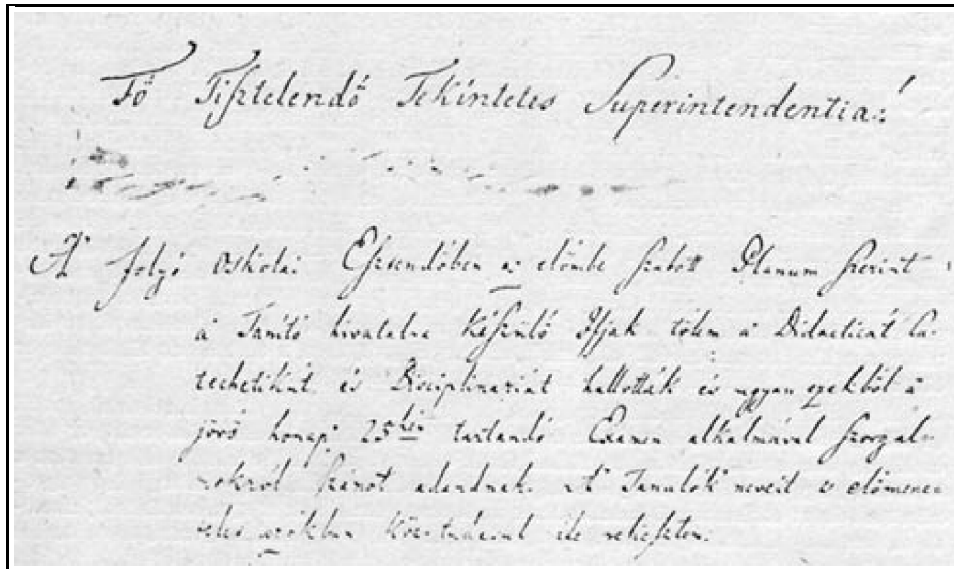 Fő Tisztelendő Tekintetes Superintendentia!
A' folyó Oskolai Esztendőben az előmbe szabott Planum szerint
a' Tanító hivatalra készülő Ifjak tőlem a' Didacticát Ca-
techetikát és Disciplinariát hallották és ugyan ezekből a'
jövő honap 25kén tartandó Examen alkalmával szorgal-
mokról számot adandnak. A' Tanulók neveit 's előmene-